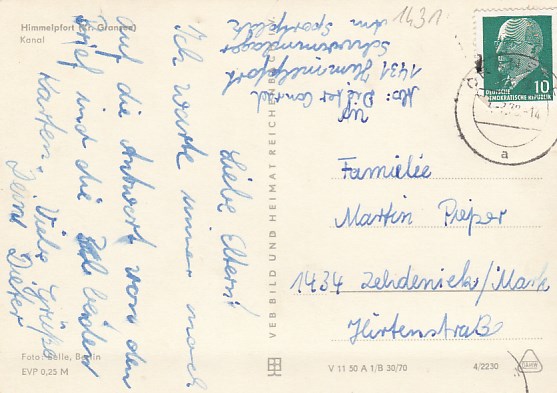 Himmelpfort (Kr. Gransee)
Kanal
Liebe Eltern!
Ich warte immer noch
auf die Antwort von den
Brief und die beiden
Karten. Viele Grüße
Deine Dieter
1431
Abs: Dieter
1431 Himmelpfort
Schwimmlager
Am Sportplatz
10
DEUTSCHE
DEMOKRATISCHE REPUBLIK
a
Familie
Martin Pieper
1434 Zehdenick/Mark
Hirtenstraß
VEB BILD UND HEIMAT REICHENBACH I. V.
Foto: Belle, Berlin
EVP 0,25 M
V 11 50 A 1/B 30/70
4/2230